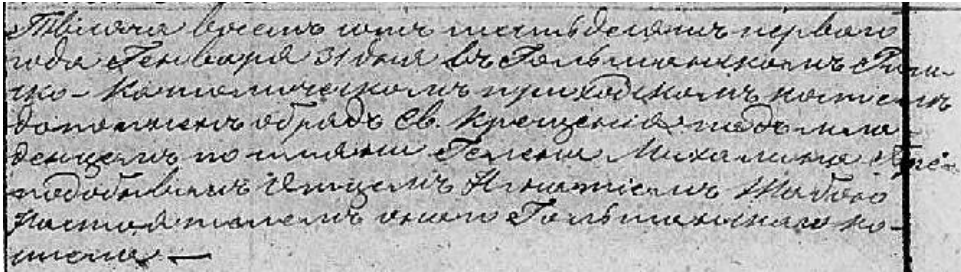 Тысяча восемь сотъ шестьдесятъ перваго
года Генваря 31 дня въ Гольшанскомъ Рим-
ско-Католическомъ приходскомъ костелѣ
дополненъ обрядъ Св. Крещенія надъ мла-
денцемъ по имени Гелена Михалина Пре-
подобнымъ Отцемъ Игнатіемъ
Настоятелемъ онаго Гольшанскаго ко-
стела. —